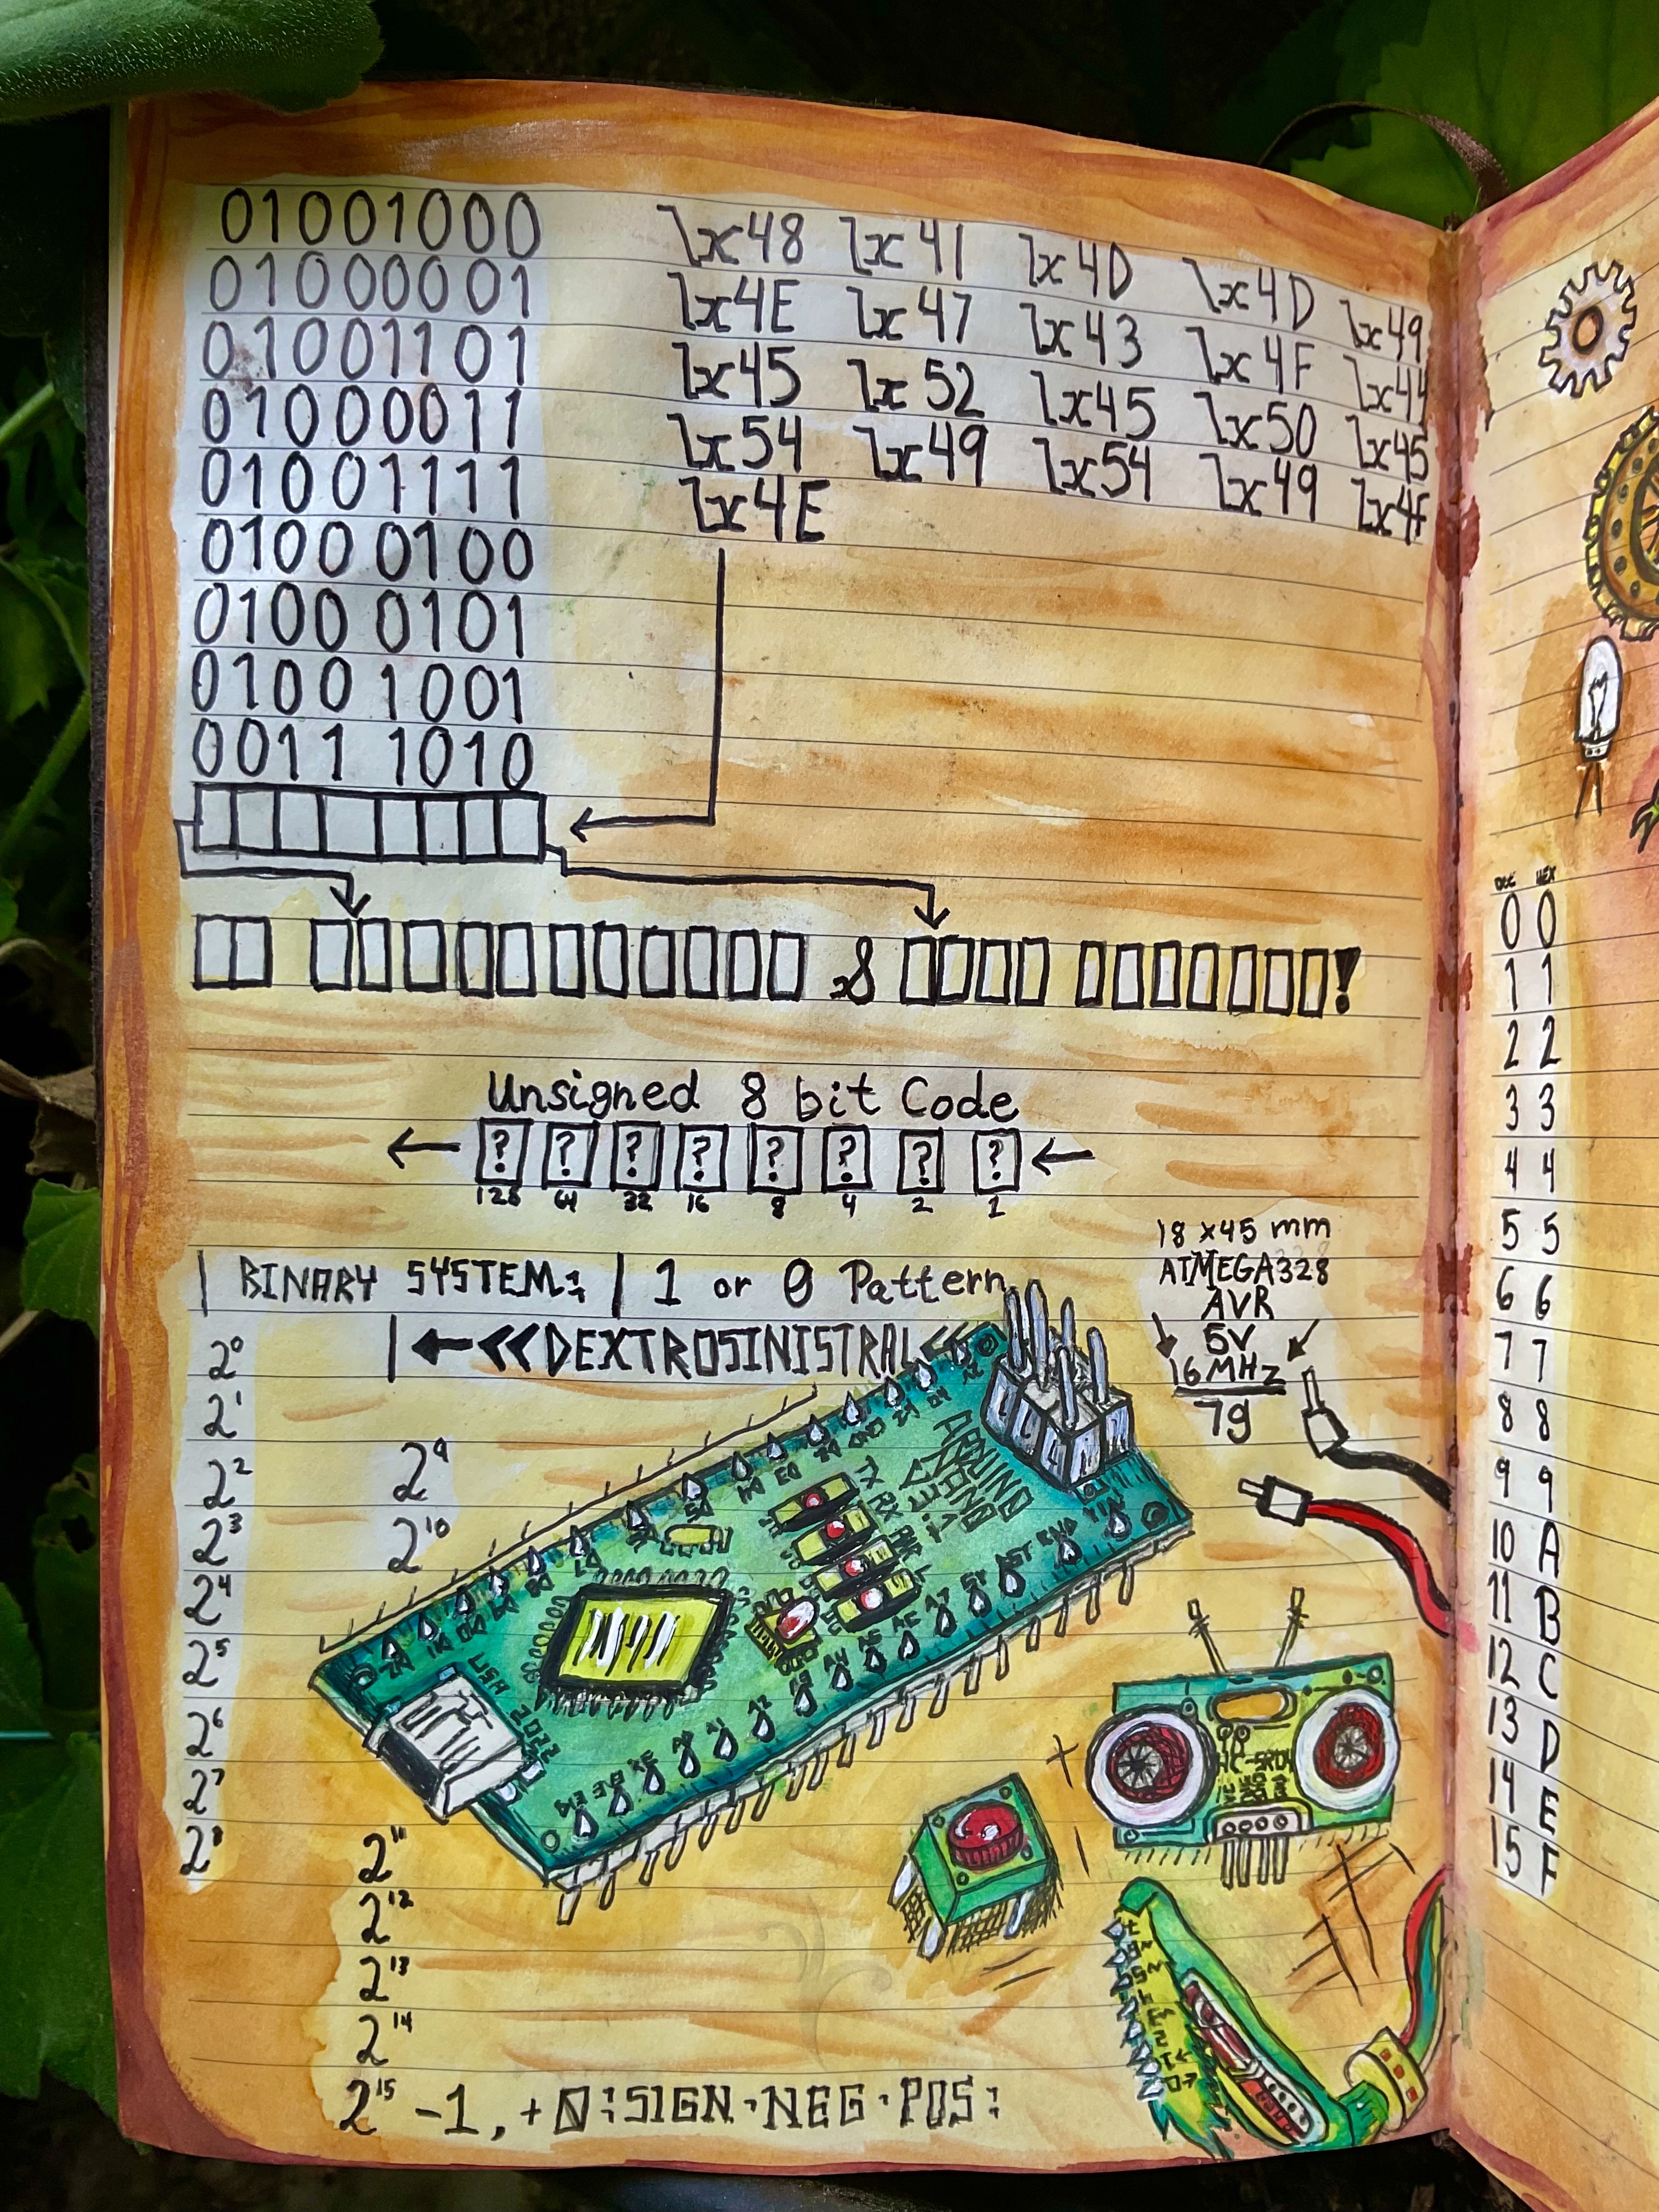 01001000
01000001
01001101
01000011
01001111
0100 0100
0100 0101
0100 1001
0011 1010
\x48 \x41 \x4D \x4D \x49
\x4E \x47 \x43 \x4F \x44
\x45 \x52 \x45 \x50 \x45
\x54 \x49 \x54 \x49 \x4F
\x4E
x8 !
Unsigned 8 bit Code
← ? ? ? ? ? ? ? ? ←
128 64 32 16 8 4 2 1
BINARY SYSTEM: | 1 or 0 Pattern
|←<<DEXTROSINISTRAL<<
18 x45 mm
ATMEGA328
AVR
5V
16MHz
7g
2⁰
2¹
2²
2³
2⁴
2⁵
2⁶
2⁷
2⁸
2⁹
2¹⁰
2¹¹
2¹²
2¹³
2¹⁴
2¹⁵ -1, + 0:SIGN·NEG·POS:
ARDUINO
NANO
V3.1
TX
RX
USA
2022
HC-SR04
DEC HEX
0 0
1 1
2 2
3 3
4 4
5 5
6 6
7 7
8 8
9 9
10 A
11 B
12 C
13 D
14 E
15 F